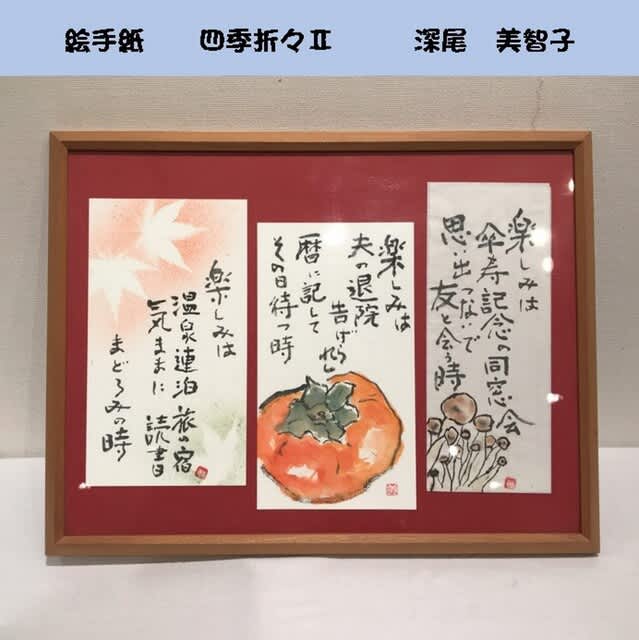 絵手紙 四季折々Ⅱ 深尾 美智子
楽しみは
傘寿記念の同窓会
思い出つないで
友と会う時
楽しみは
夫の退院
告げられし
暦に記して
その日待つ時
楽しみは
温泉連泊 旅の宿
気ままに 読書
まどろみの時